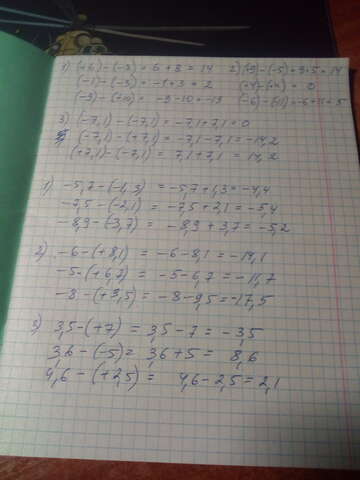 1) (+6)-(-8)=6+8=14 2)(+9)-(-5)=9+5=14
(-1)-(-3)=-1+3=2 (+4)-(+4)=0
(-3)-(+10)=-3-10=-13 (-6)-(-11)=-6+11=5
3) (-7,1)-(-7,1)=-7,1+7,1=0
(-7,1)-(+7,1)=-7,1-7,1=-14,2
(+7,1)-(-7,1)=7,1+7,1=14,2
1) -5,7-(-1,3)=-5,7+1,3=-4,4
-7,5-(-2,1)=-7,5+2,1=-5,4
-8,9-(-3,7)=-8,9+3,7=-5,2
2) -6-(+8,1)=-6-8,1=-14,1
-5-(+6,7)=-5-6,7=-11,7
-8-(+9,5)=-8-9,5=-17,5
3) 3,5-(+7)=3,5-7=-3,5
3,6-(-5)=3,6+5=8,6
4,6-(+2,5)=4,6-2,5=2,1